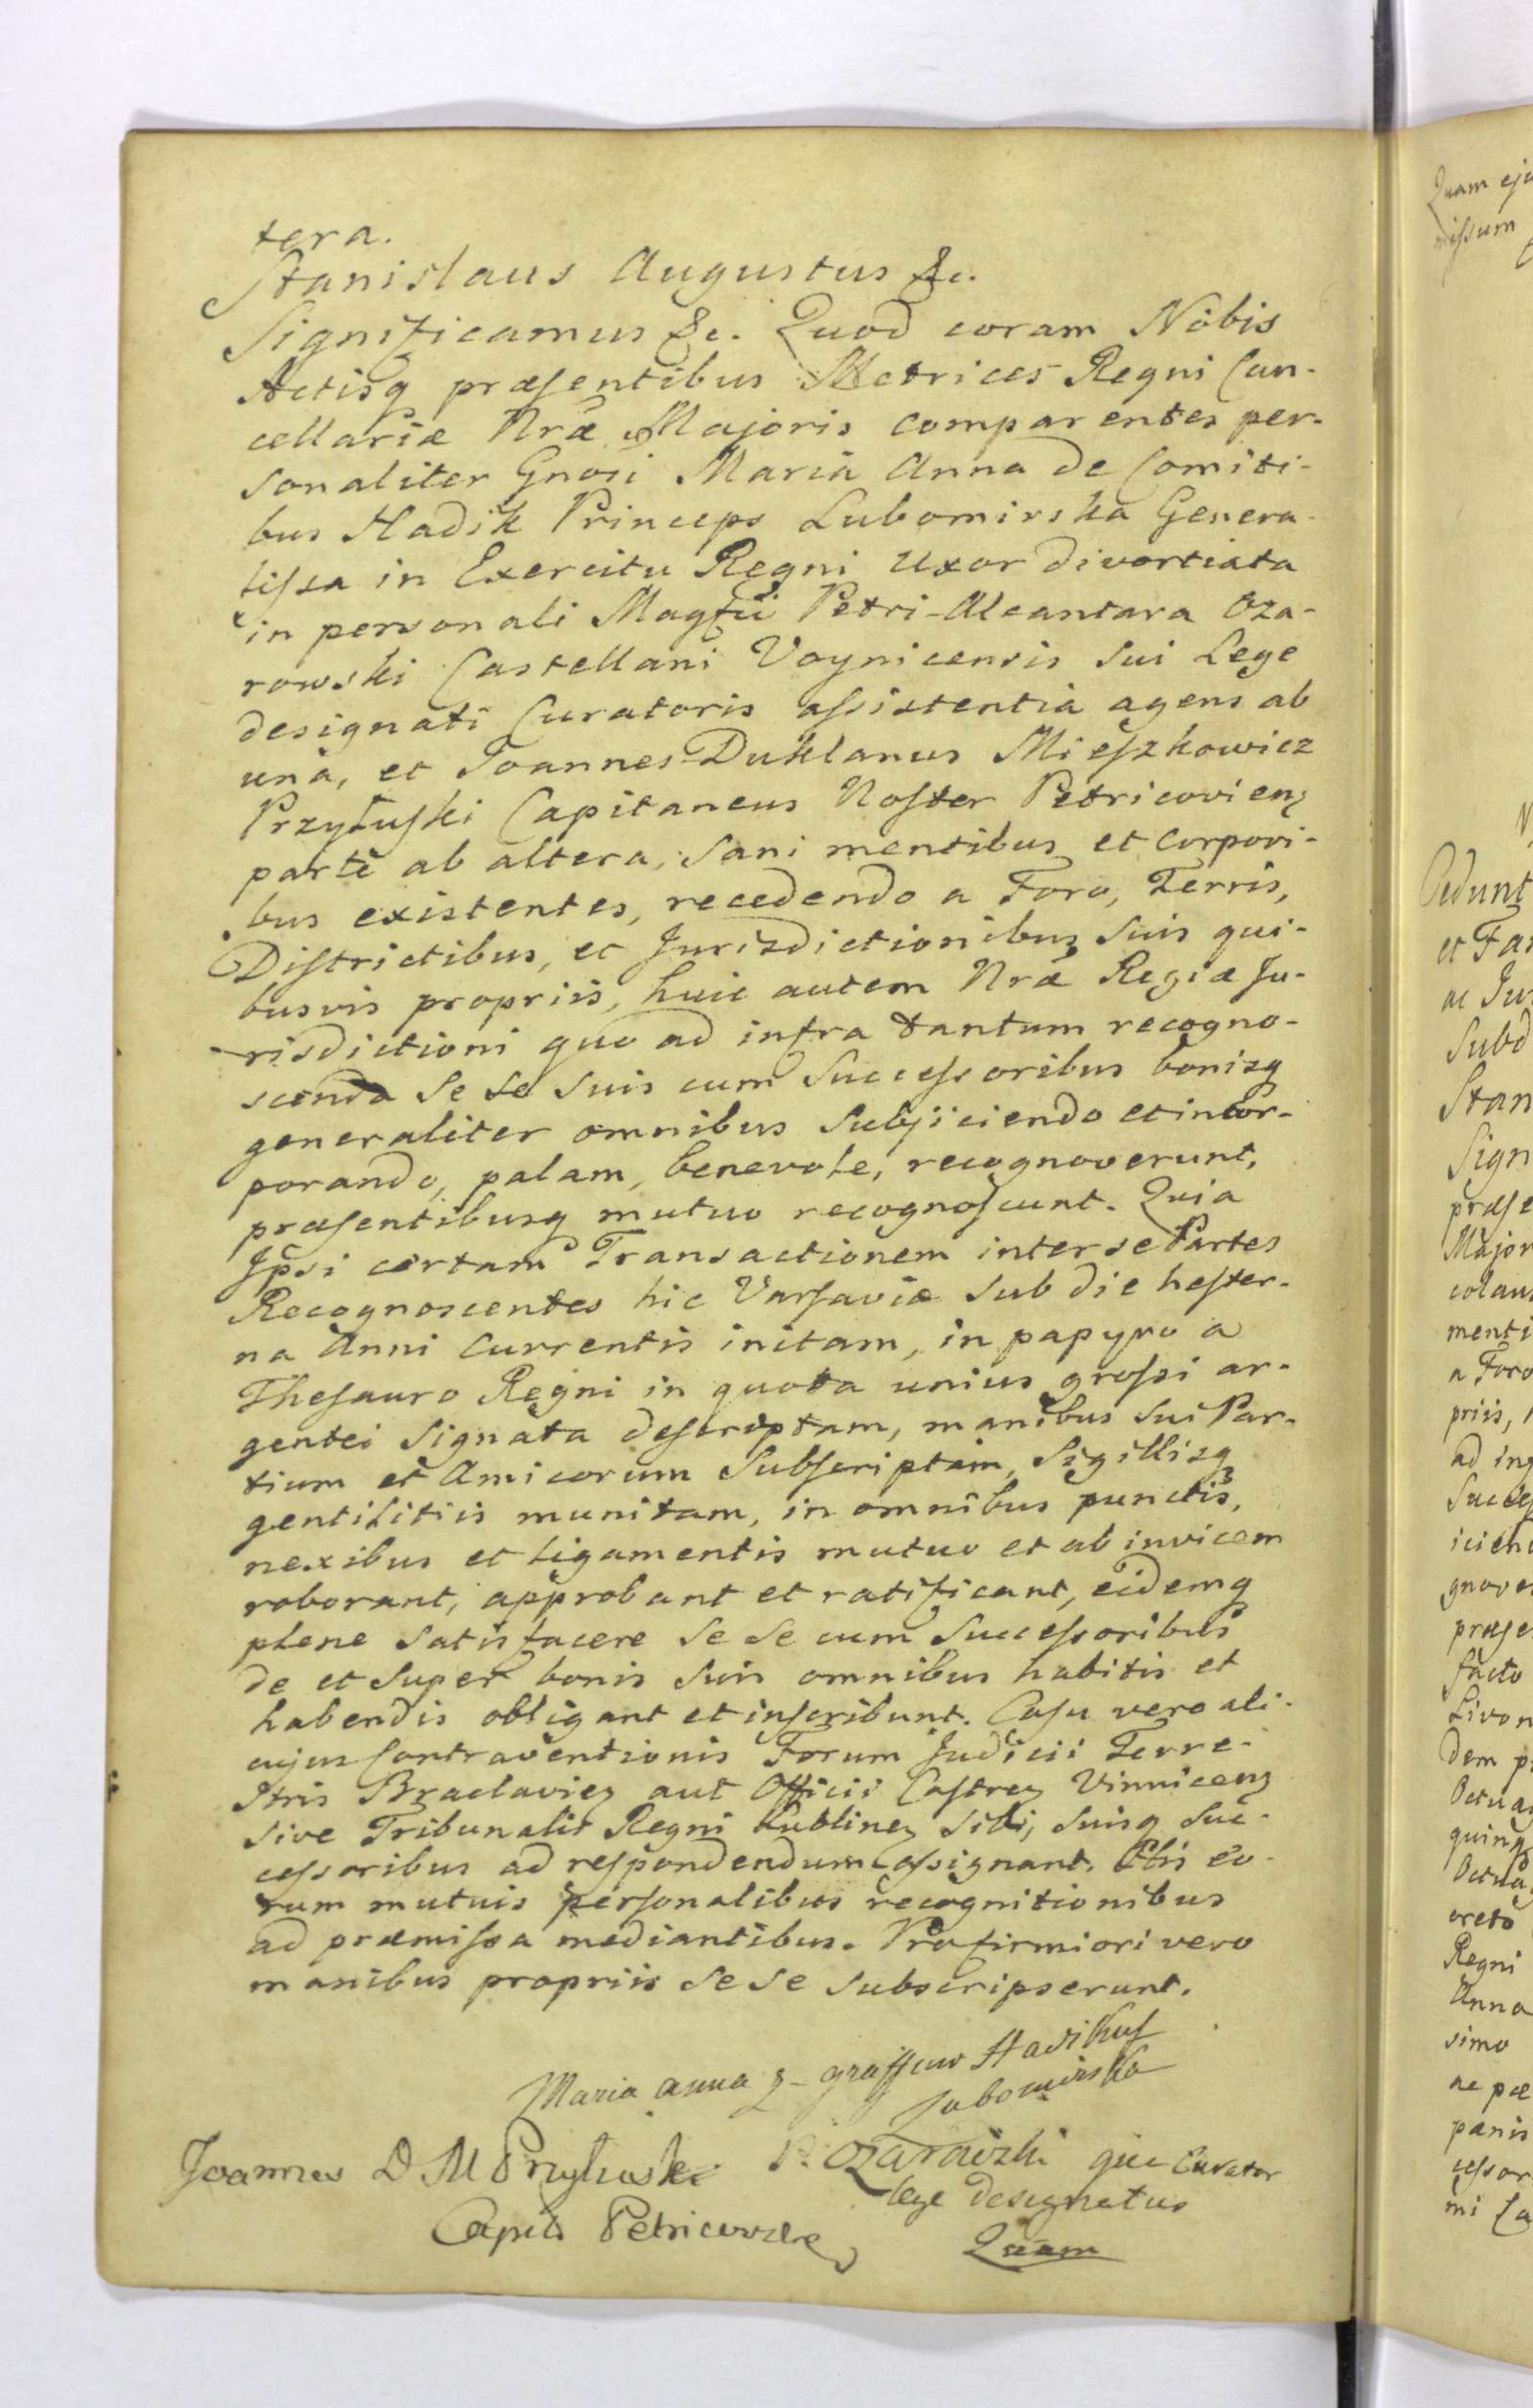 tera.
Stanislaus Augustus &c.
Significamus &c. Quod coram Nobis
Actisq præsentibus Metrices Regni Can-
cellariæ Nræ Majoris comparentes per-
sonaliter Gnosi Maria Anna de Comiti-
bus Hadik Princeps Lubomirska Genera-
lissa in Exercitu Regni Uxor divortiata
in personali Magfii Petri-Alcantara Oza-
rowski Castellani Voynicensis sui Lege
designati Curatoris assistentia agens ab
una, et Joannes Duklanus Mieszkowicz
Przyłuski Capitaneus Noster Petricovienz
parte ab altera, sani mentibus et corpori-
bus existentes, recedendo a Foro, Terris,
Districtibus, et Jurisdictionibus suis qui-
busvis propriis, huic autem Nræ Regiæ Ju-
risdictioni quo ad infra tantum recogno-
scenda se se suis cum Successoribus bonisq
generaliter omnibus subjiciendo et incor-
porando, palam, benevole, recognoverunt,
præsentibusq mutuo recognoscunt. Quia
Ipsi certam Transactionem inter se Partes
Recognoscentes hic Varsaviæ sub die hester-
na Anni Currentis initam, in papyro a
Thesauro Regni in quota unius grossi ar-
gentei signata descriptam, manibus sui Par-
tium et Amicorum Subscriptam, Sigillisq
gentilitiis munitam, in omnibus punctis,
nexibus et ligamentis mutuo et ab invicem
roborant, approbant et ratificant, eidemq
plene satisfacere se se cum Successoribus
de et super bonis suis omnibus habitis et
habendis obligant et inscribunt. Casu vero ali-
cujus Contraventionis Forum Judicii Terre-
stris Braclaviez aut Officii Castrez Vinnicenz
sive Tribunalis Regni Lublinez sibi, suisq Suc-
cessoribus ad respondendum assignant. Ptis eo-
rum mutuis personalibus recognitionibus
ad præmissa mediantibus. Pro firmiori vero
manibus propriis se se subscripserunt.
Maria anna z graffuw Hadikuf
Lubomirska
Joannes D M Przyłuski P. Ozarowski qua Curator
lege designatus
Capis Petricoviez
Quam
Quam eju
missum
Cedunt
et Fa
ac Jur
Subd
Stan
Sign
præse
Major
colaus
menti
a Foro
priis,
ad inf
Succes
iciend
gnove
præse
facto
Livon
dem p
Octua
quinq
Octua
oreto
Regni
Anno
simo
ac pæ
panis
cessor
mi Ca